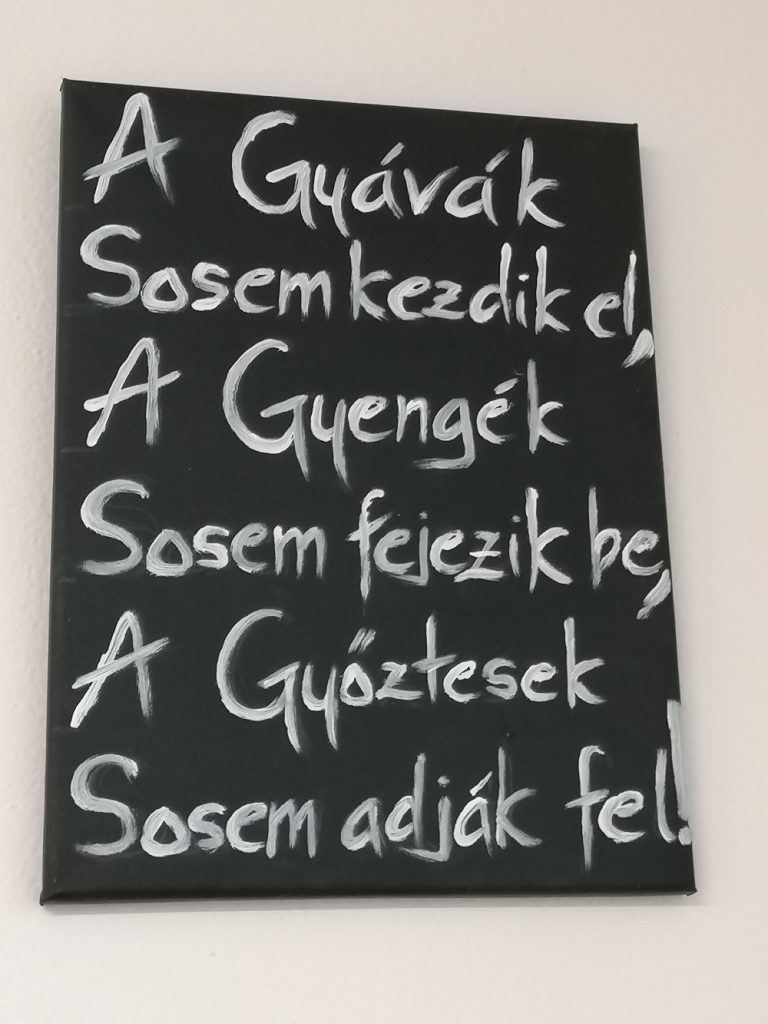 A Gyávák
Sosem kezdik el,
A Gyengék
Sosem fejezik be,
A Győztesek
Sosem adják fel!